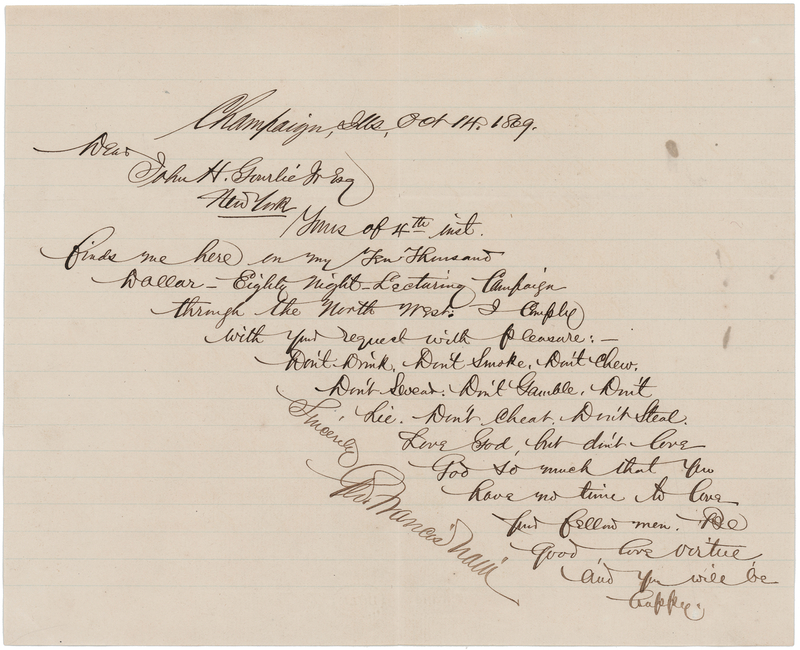 Champaign, Ills, Oct 14. 1869.
Dear
John H. Gourlie Jr Esq
New York
Yours of 4th inst.
finds me here on my Ten Thousand
Dollar - Eighty Night - Lecturing Campaign
through the North West. I comply
with your request with pleasure: -
Don't Drink. Don't Smoke. Don't Chew.
Don't Swear. Don't Gamble. Don't
Lie. Don't Cheat. Don't Steal.
Love God, but don't love
God so much that you
have no time to love
your fellow men. Be
Good, love virtue
and you will be
happy.
Sincerely
Geo. Francis Train